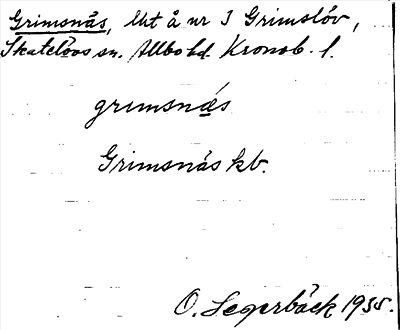 Grimsnäs, lht å nr 3 Grimslöv,
Skatelövs sn. Allbo hd. Kronob. l.
grimsnä́s
Grimsnäs kb.
O. Segerbäck 1935.